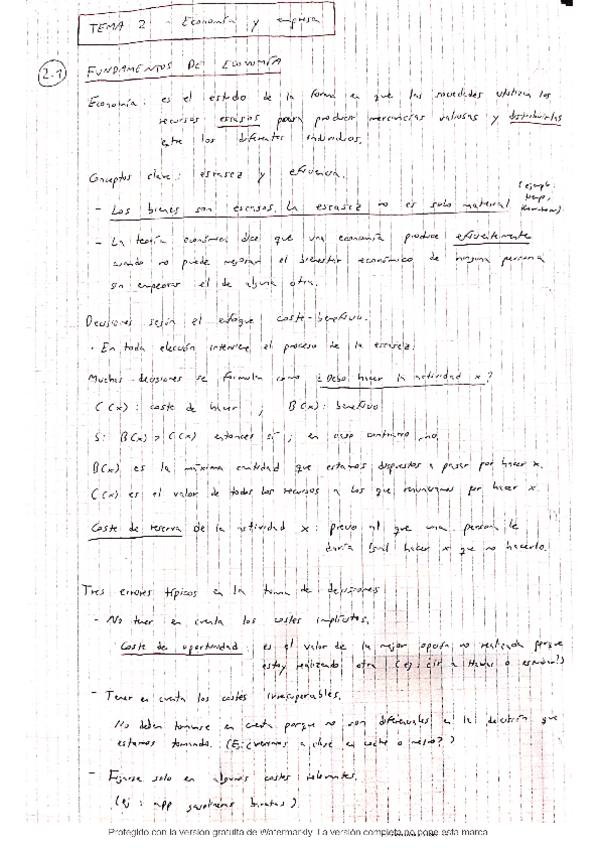 TEMA 2 - Economía y empresa
2.1 FUNDAMENTOS DE ECONOMÍA
Economía: es el estudio de la forma en que las sociedades utilizan los
recursos escasos para producir mercancías valiosas y distribuirlas
entre los diferentes individuos.
Conceptos clave: escasez y eficiencia.
- Los bienes son escasos. La escasez no es solo material
- La teoría económica dice que una economía produce eficientemente
cuando no puede mejorar el bienestar económico de ninguna persona
sin empeorar el de alguna otra.
Decisiones según el enfoque coste-beneficio.
· En toda elección interviene el proceso de la escasez.
Muchas decisiones se formula como ¿Debo hacer la actividad x?
C(x): coste de hacer ; B(x): beneficio
Si B(x) > C(x) entonces sí ; en caso contrario, no.
B(x) es la máxima cantidad que estamos dispuestos a pagar por hacer x.
C(x) es el valor de todos los recursos a los que renunciamos por hacer x.
Coste de reserva de la actividad x: precio al que una persona le
daría igual hacer x que no hacerlo.
Tres errores típicos en la toma de decisiones
- No tener en cuenta los costes implícitos.
Coste de oportunidad: es el valor de la mejor opción no realizada porque
estoy realizando otra (ej: ir a o estudiar?)
- Tener en cuenta los costes irrecuperables.
No deben tomarse en cuenta porque no son diferenciales en la decisión que
estamos tomando. (Ej: a clase en coche o metro?)
- Fijarse solo en algunos costes relevantes.
(ej: app gasolineras baratas)
Protegido con la versión gratuita de Watermarkly. La versión completa no pone esta marca